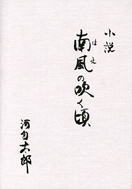 小説
南風の吹く頃
はえ
太郎